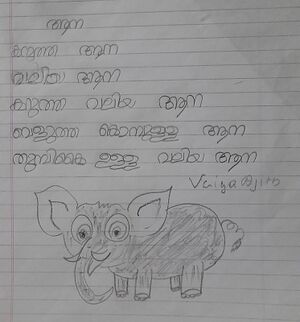 ആന
കറുത്ത ആന
വലിയ ആന
കറുത്ത വലിയ ആന
വെളുത്ത കൊമ്പുള്ള ആന
തുമ്പികൈ ഉള്ള വലിയ ആന
Vaiga Ajith